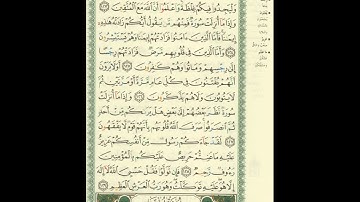 وَلْيَجِدُوا۟ فِيكُمْ غِلْظَةً وَٱعْلَمُوٓا۟ أَنَّ ٱللَّهَ مَعَ ٱلْمُتَّقِينَ
وَإِذَا مَآ أُنزِلَتْ سُورَةٌ فَمِنْهُم مَّن يَقُولُ أَيُّكُمْ زَادَتْهُ هَـٰذِهِۦٓ
إِيمَـٰنًا فَأَمَّا ٱلَّذِينَ ءَامَنُوا۟ فَزَادَتْهُمْ إِيمَـٰنًا وَهُمْ يَسْتَبْشِرُونَ
وَأَمَّا ٱلَّذِينَ فِى قُلُوبِهِم مَّرَضٌ فَزَادَتْهُمْ رِجْسًا
إِلَىٰ رِجْسِهِمْ وَمَاتُوا۟ وَهُمْ كَـٰفِرُونَ أَوَلَا يَرَوْنَ
أَنَّهُمْ يُفْتَنُونَ فِى كُلِّ عَامٍ مَّرَّةً أَوْ مَرَّتَيْنِ ثُمَّ
لَا يَتُوبُونَ وَلَا هُمْ يَذَّكَّرُونَ وَإِذَا مَآ أُنزِلَتْ
سُورَةٌ نَّظَرَ بَعْضُهُمْ إِلَىٰ بَعْضٍ هَلْ يَرَىٰكُم مِّنْ أَحَدٍ
ثُمَّ ٱنصَرَفُوا۟ صَرَفَ ٱللَّهُ قُلُوبَهُم بِأَنَّهُمْ قَوْمٌ لَّا يَفْقَهُونَ
لَقَدْ جَآءَكُمْ رَسُولٌ مِّنْ أَنفُسِكُمْ عَزِيزٌ
عَلَيْهِ مَا عَنِتُّمْ حَرِيصٌ عَلَيْكُم بِٱلْمُؤْمِنِينَ
رَءُوفٌ رَّحِيمٌ فَإِن تَوَلَّوْا۟ فَقُلْ حَسْبِىَ ٱللَّهُ لَآ إِلَـٰهَ
إِلَّا هُوَ عَلَيْهِ تَوَكَّلْتُ وَهُوَ رَبُّ ٱلْعَرْشِ ٱلْعَظِيمِ